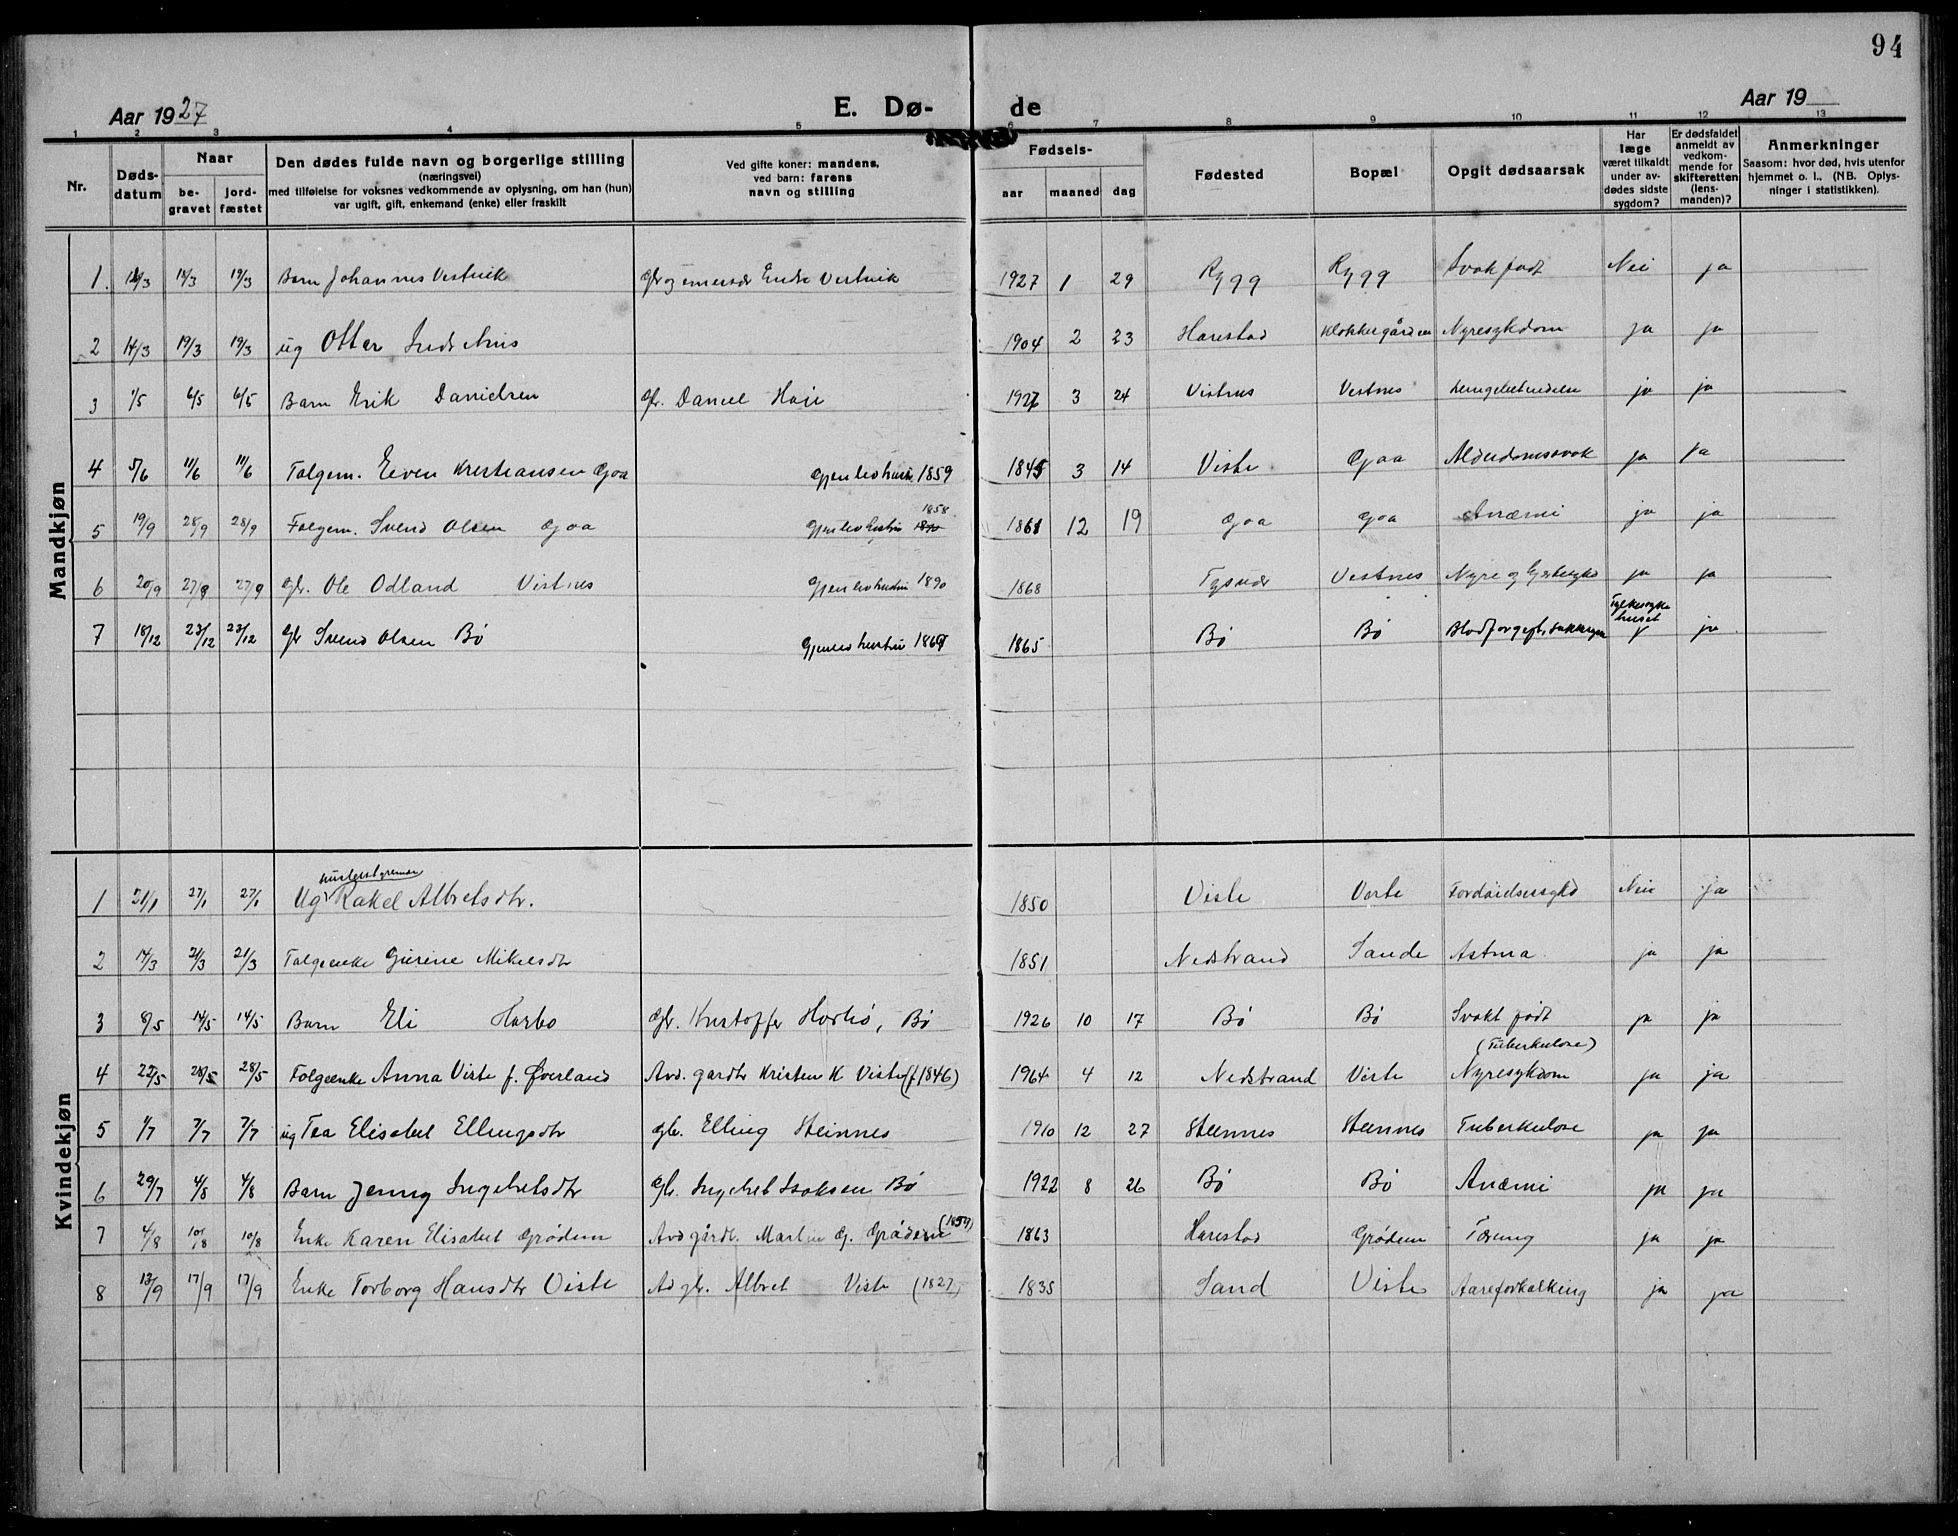 94
Aar 1927
E. Dø-
de
Aar 19
1 2 3 4 5 6 7 8 9 10 11 12 13
Nr.
Døds-
datum
Naar
be-
gravet
jord-
fæstet
Den dødes fulde navn og borgerlige stilling
(næringsvei)
med tilføielse for voksnes vedkommende av oplysning, om han (hun)
var ugift, gift, enkemand (enke) eller fraskilt
Ved gifte koner: mandens,
ved barn: farens
navn og stilling
Fødsels-
aar maaned dag
Fødested
Bopæl
Opgit dødsaarsak
Har
læge
været tilkaldt
under av-
dødes sidste
sygdom?
Er dødsfaldet
anmeldt av
vedkom-
mende for
skifteretten
(lens-
manden)?
Anmerkninger
Saasom: hvor død, hvis utenfor
hjemmet o. l., (NB. Oplys-
ninger i statistikken).
Mandkjøn
1. 19/3 19/3 Barn Johannes Vestvik Endre Vestvik 1927 1 29 Rygg Rygg Svakfødt Nei ja
2 14/3 19/3 19/3 ug Ottar 1904 2 23 Harestad Klokkergården Nyresykdom ja ja
3 1/5 6/5 6/5 Barn Erik Danielsen Gbr. Daniel 1927 3 24 Vistnes Vestnes ja ja
4 5/6 11/6 11/6 Folgem. Eiven Kristiansen Goa Gjenlev hustru 1859 1845 3 14 Viste Goa Alderdomssvak ja ja
1858
5 19/9 28/9 28/9 Folgem. Svend Olsen Goa Gjenlev hustru 1861 12 19 Goa Goa Anæmi ja ja
6 20/9 27/9 27/9 Gbr. Ole Odland Vistnes Gjenlev hustru 1890 1868 Tysvær Vestnes Nyre og Hjertesykd ja ja
Sykehuset
7 18/12 23/12 23/12 Gbr Svend Olsen Bø Gjenlev hustru 1865 Bø Bø ja
Kvindekjøn
husbestyrerinde
1 21/1 27/1 27/1 Ug Rakel Albretsdtr. 1850 Viste Viste Fordøielsessykd Nei ja
2 14/3 21/3 21/3 Folgeenke Gurine Mikelsdtr 1851 Nedstrand Sande Astma ja ja
3 8/5 14/5 14/5 Barn Eli Harbo Gbr. Kristoffer Harbø, Bø 1926 10 17 Bø Bø Svakt født ja ja
(Tuberkulose)
4 22/5 28/5 28/5 Folgeenke Anna Viste f. Øverland Avd. gardbr Kristen K Viste (f 1846) 1964 4 12 Nedstrand Viste Nyresykdom ja ja
5 1/7 7/7 7/7 ug Tea Elisabet Ellingsdtr gbr. Elling Steinnes 1910 12 27 Steinnes Steinnes Tuberkulose ja ja
6 29/7 4/8 4/8 Barn Jenny Ingebretsdtr Gbr. Ingebret Isaksen Bø 1922 8 26 Bø Bø Anæmi ja ja
7 4/8 10/8 10/8 Enke Karen Elisabet Grødem Avd gårdbr. Martin G. Grødem 1863 Harestad Grødem Tæring ja ja
8 13/9 17/9 17/9 Enke Torborg Hansdtr Viste Avd gbr. Albret Viste (1827) 1835 Sand Viste Aareforkalkning ja ja